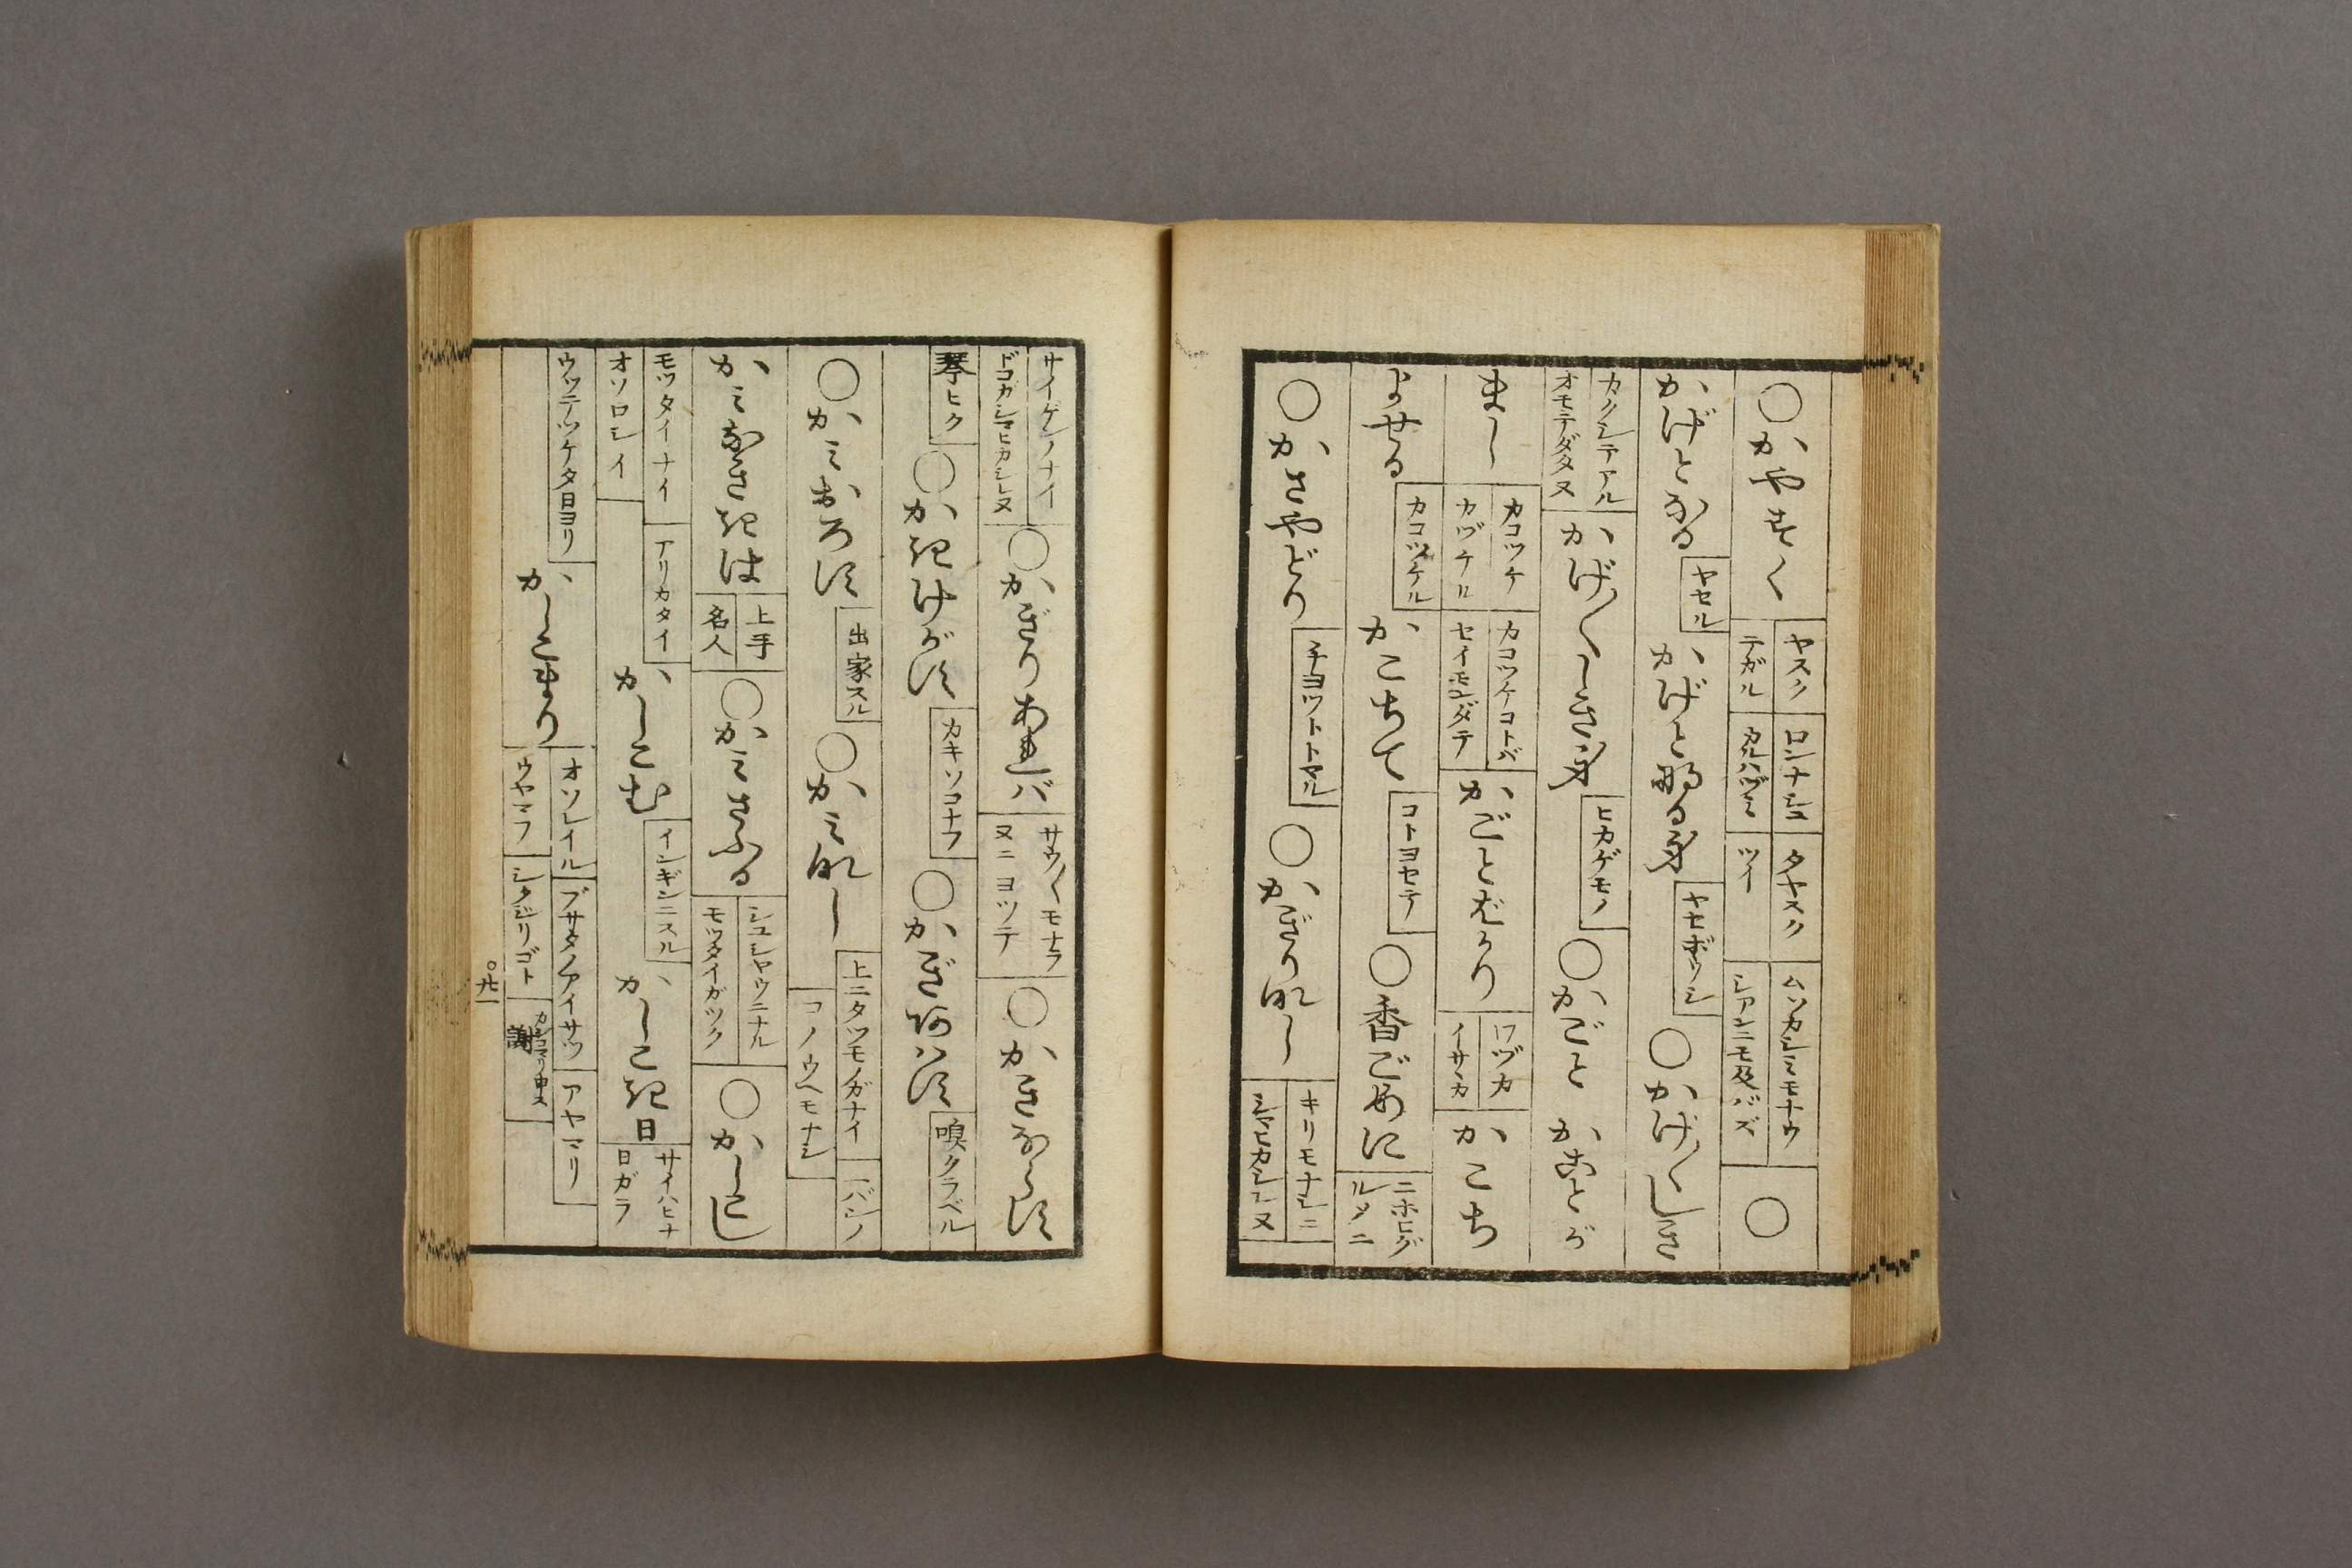 ○かやすく ヤスク テガル ロンナシニ カルハヅミ タヤスク ツイ ムツカシミモナウ シアンニモ及バズ ○
かげとなる ヤセル かげとなる身 ヤセボウシ ○かげ〳〵しき
カクシテアル オモテダタヌ かげ〳〵しき身 ヒカゲモノ ○かごと かごとが
まし カコツケ カヅケル カコツケコトバ セイモンダテ かごとばかり ワヅカ イサヽカ かこち
よせる カコツケル かこちて コトヨセテ ○香ごめに ニホヒグ ルメニ
○かさやどり チヨツトトマル ○かぎりなし キリモナシニ シマヒカシレヌ
サイゲンノナイ ドコガシマヒカシレヌ ○かぎりあれバ サウ〳〵モナラ ヌニヨツテ ○かきならす
琴ヒク ○かきけがす カキソコナフ ○かぎあハす 嗅クラベル
○かみおろす 出家スル ○かみなし 上ニタツモノガナイ コノウヘモナシ 一バンノ
かみなききは 上手 名人 ○かみさぶる シユシヤウニナル モツタイガツク ○かしこし
モツタイナイ オソロシイ アリカタイ かしこむ インギンニスル かしこき日 サイハヒナ 日ガラ
ウツテツケタ日ヨリ かしこまり オソレイル ウヤマフ ブサタノアイサツ シクジリゴト アヤマリ カシコマリ申ス 謝
○九一